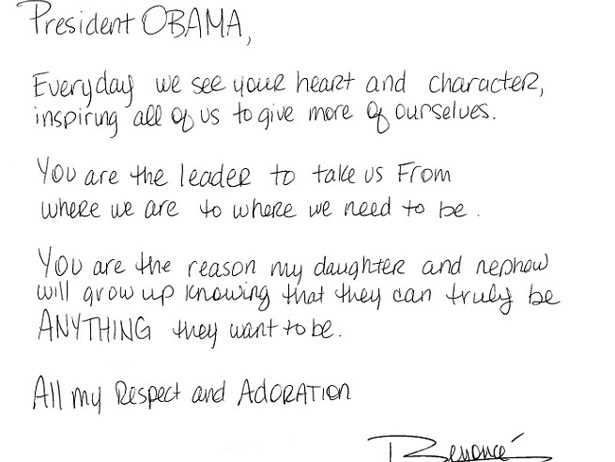 President OBAMA,
Everyday we see your heart and character,
inspiring all of us to give more of ourselves.
You are the leader to take us From
where we are to where we need to be.
You are the reason my daughter and nephew
will grow up knowing that they can truly be
ANYTHING they want to be.
All my Respect and ADORATION
Beyoncé